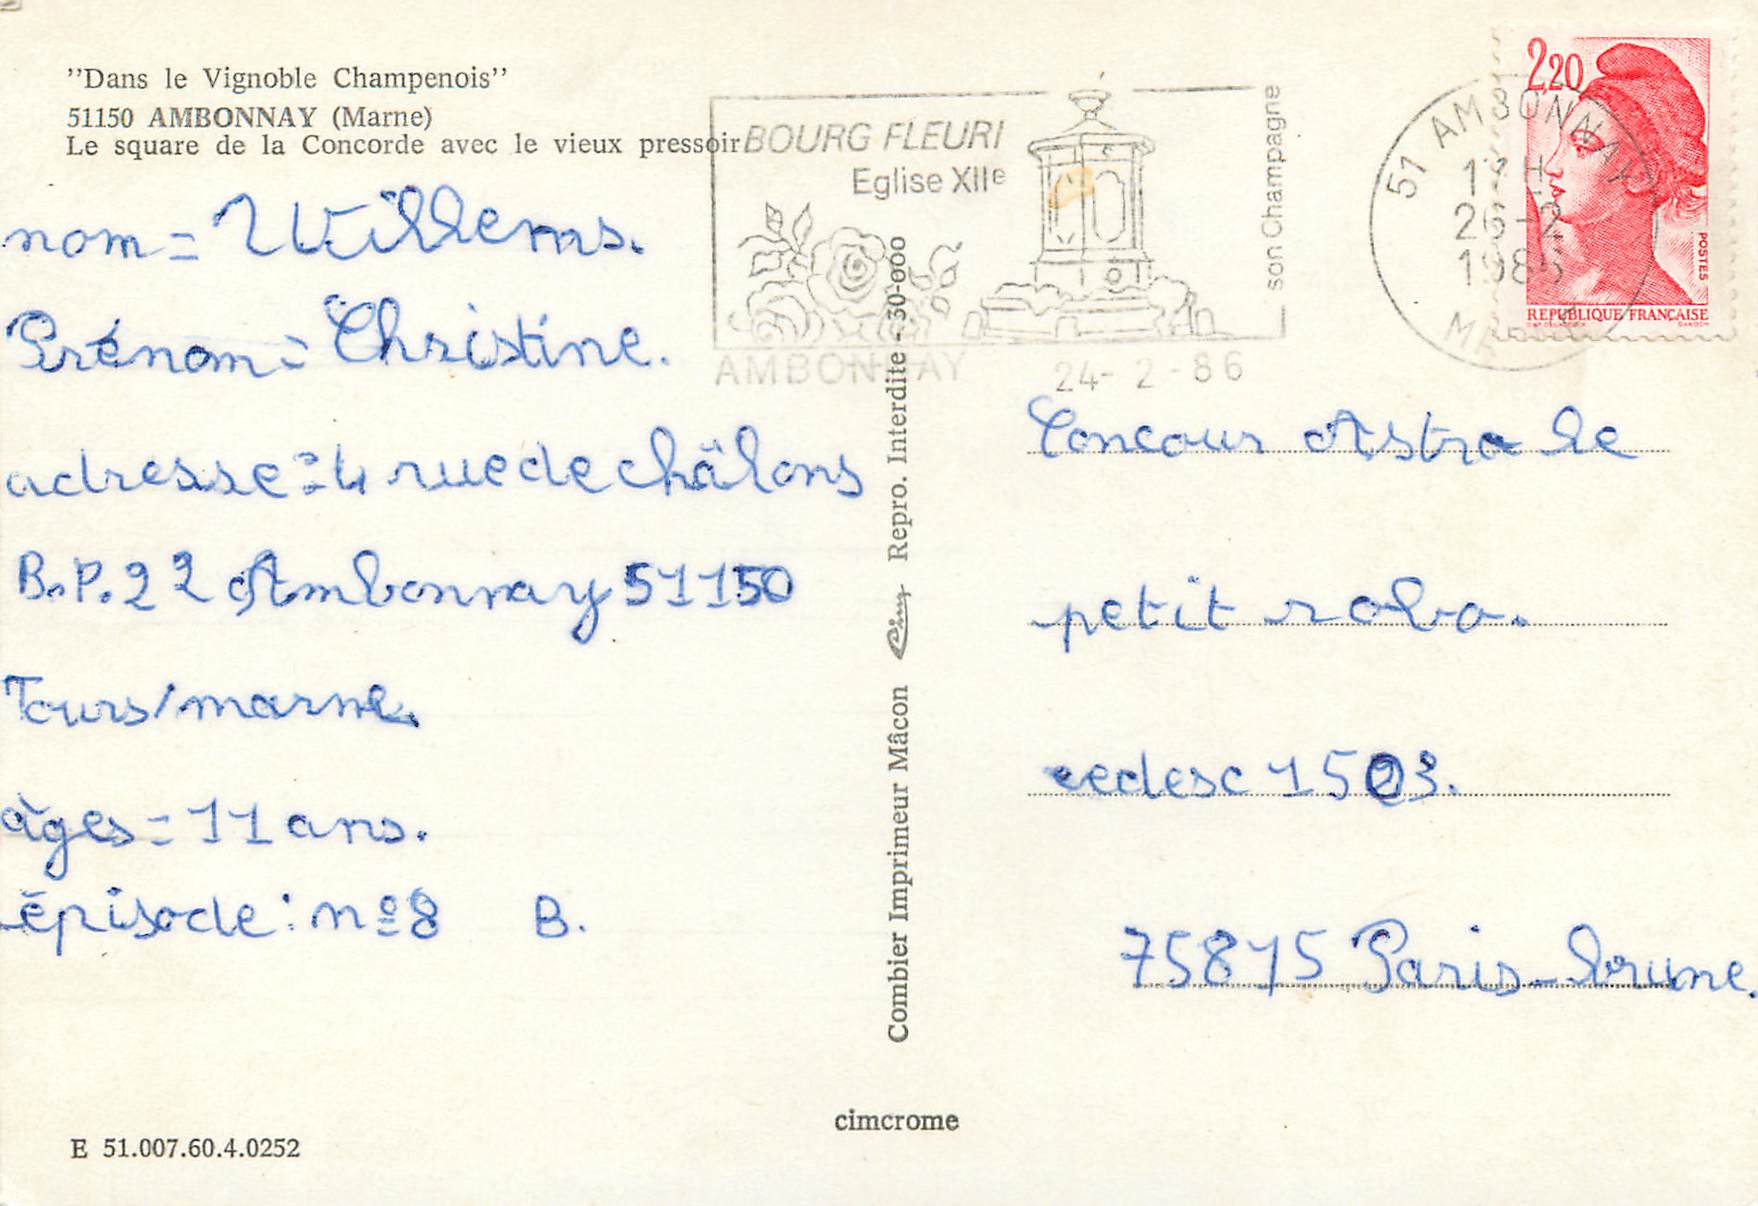 "Dans le Vignoble Champenois"
51150 AMBONNAY (Marne)
Le square de la Concorde avec le vieux pressoir
BOURG FLEURI
Eglise XIIe
son Champagne
AMBONNAY
24-2-86
51 AMBONNAY
17H
26-2
1986
2,20
POSTES
REPUBLIQUE FRANÇAISE
nom = Willems.
Prénom = Christine.
adresse = 4 rue de châlons
B.P.22 Ambonnay 51150
Tours/marne.
âges = 11 ans.
épisode : n° 8 B.
Combier Imprimeur Mâcon Cim Repro. Interdite - 30-000
Concour Astra le
petit robo.
cedesc 1503.
75845 Paris-brune.
cimcrome
E 51.007.60.4.0252